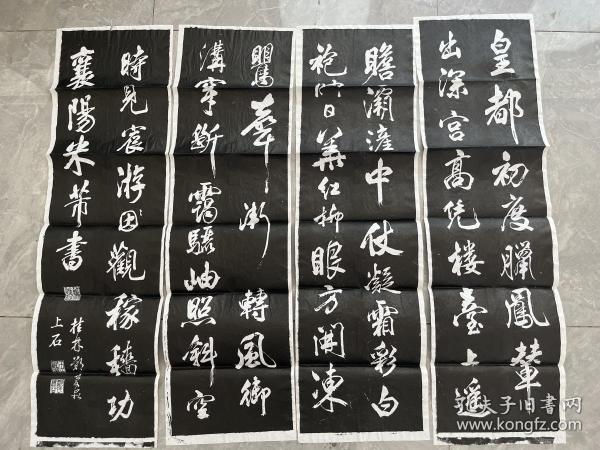 皇都初度臘鳳輦
出深宮高凭樓臺上遥
瞻灞滻中仗凝霜彩白
袍映日華紅柳眼方開凍
漸轉風御
溝穿斷靄驪岫照斜空
時見宸游因觀稼穡功
襄陽米芾書
桂林
上石
孔夫子旧书网
www.kongfz.com